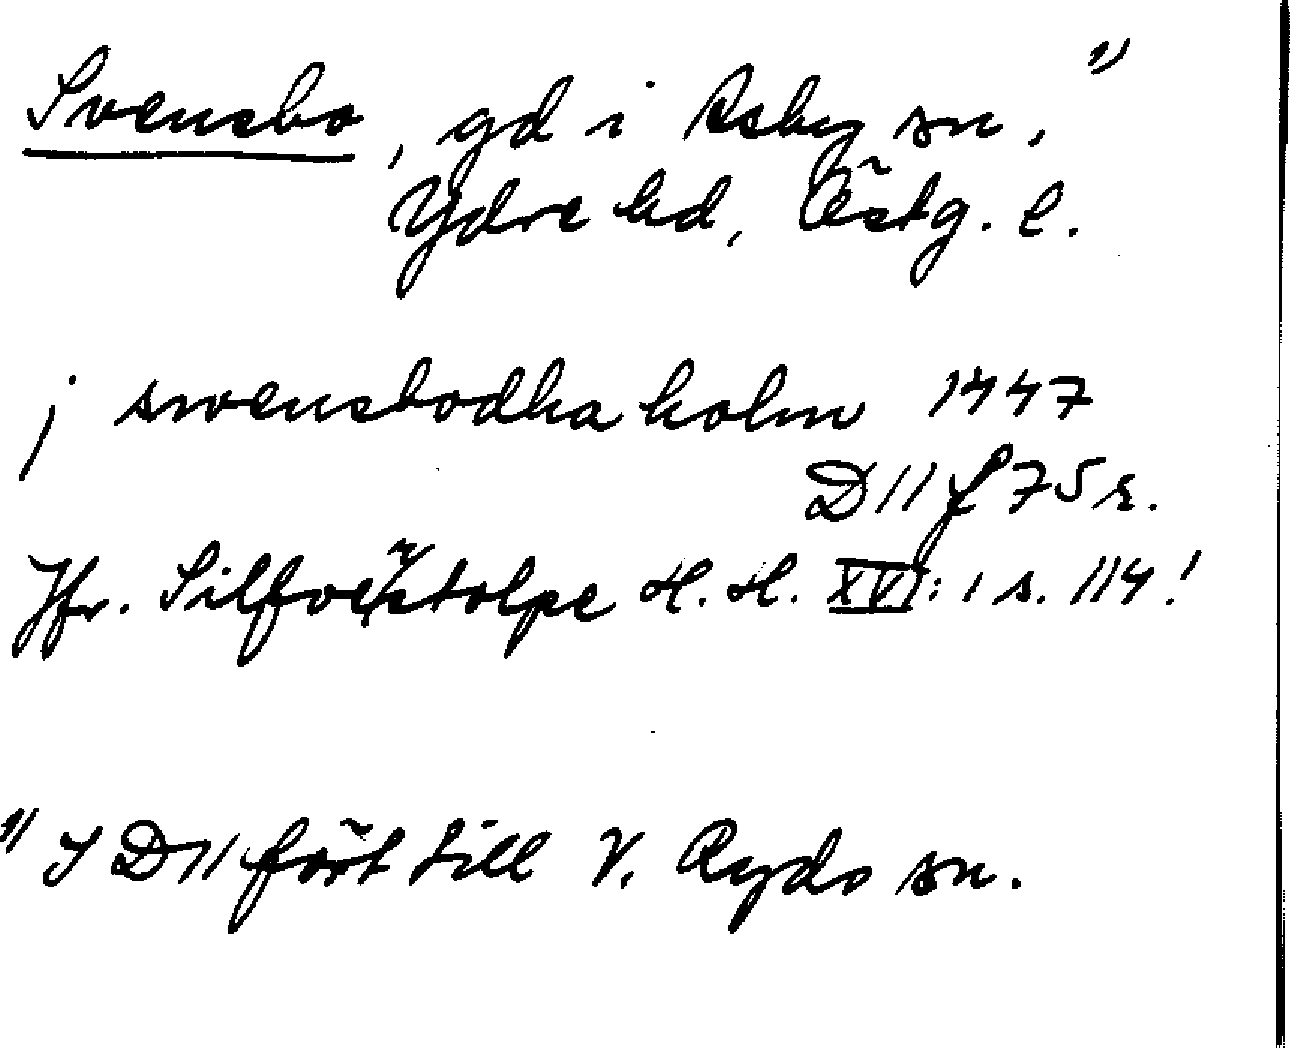 Svensbo, gd i Asby sn. 1)
Ydre hd, Östg. l.
j swensbodha holm 1447
D11 f 75 r.
Jfr. Silfverstolpe H. H. XVI: 1 s. 114!
1) I D11 fört till V. Ryds sn.